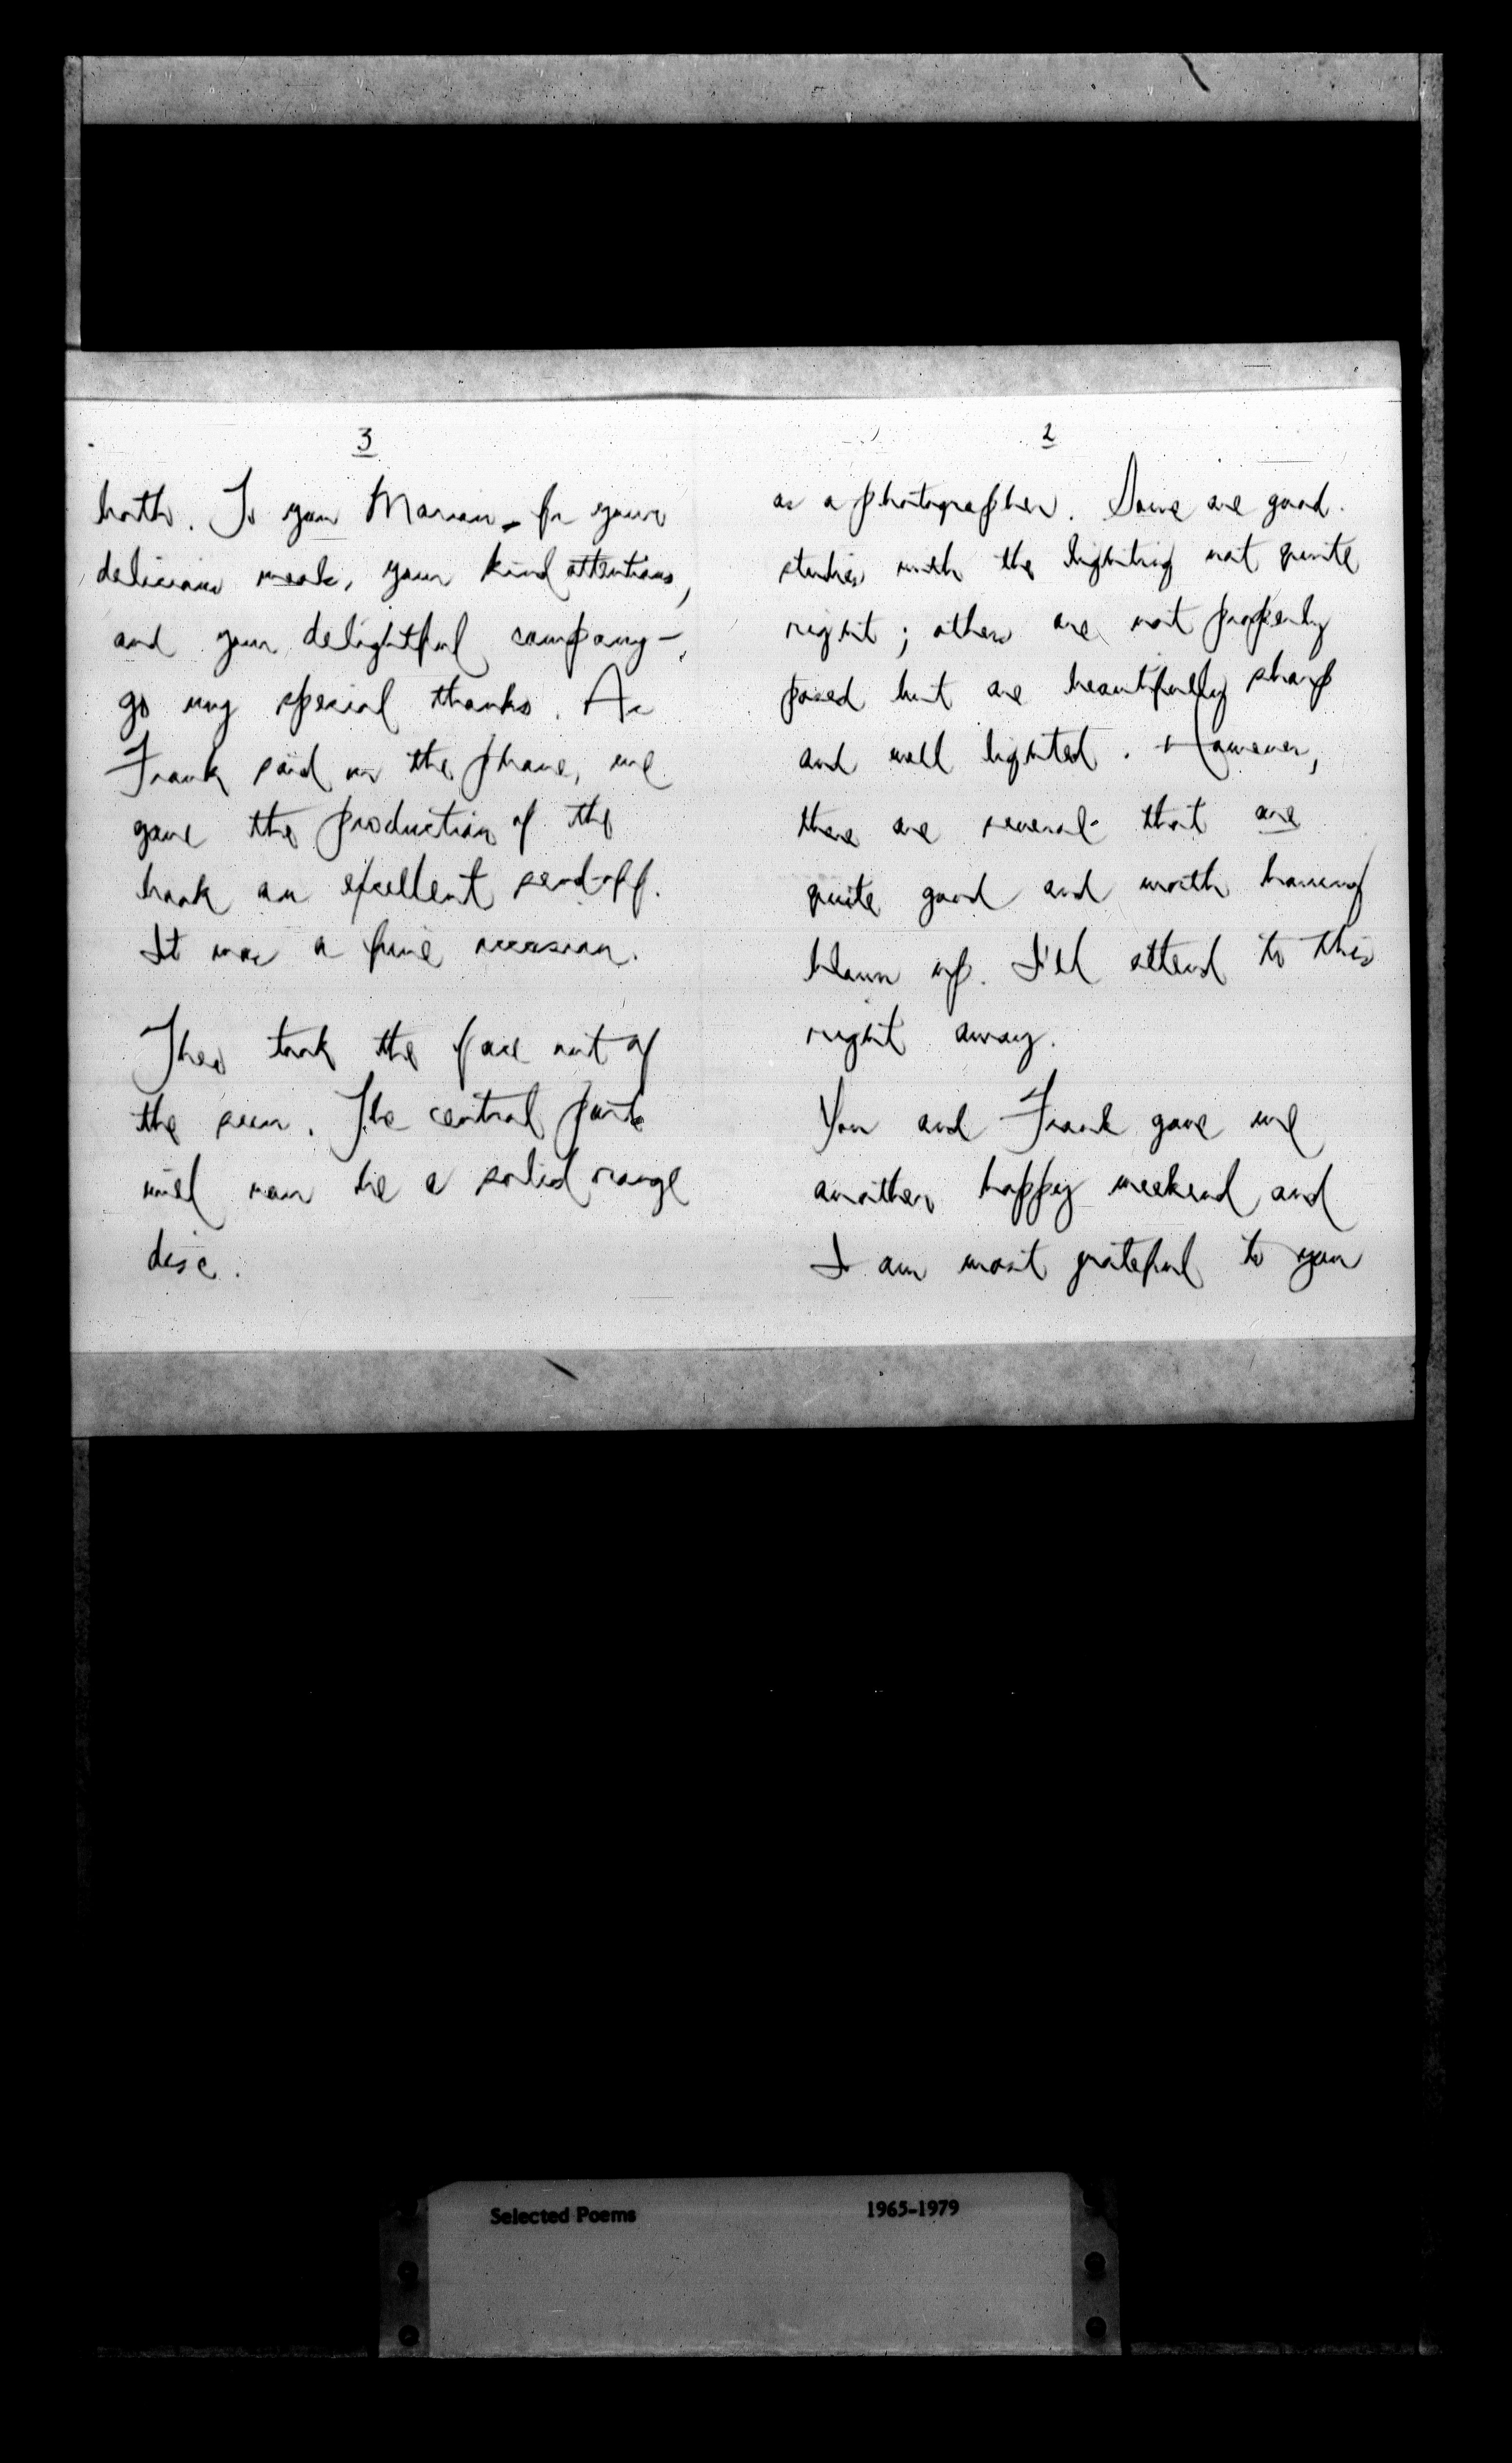 2
as a photographer. Some are good
studies with the lighting not quite
right; others are not properly
posed but are beautifully sharp
and well lighted. However,
there are several that are
quite good and worth having
blown up. I'll attend to this
right away.
You and Frank gave me
another happy weekend and
I am most grateful to you
3
both. To you Marian – for your
delicious meals, your kind attentions,
and your delightful company –
go my special thanks. As
Frank said on the phone, we
gave the production of the
book an excellent send-off.
It was a fine occasion.
Theo took the face out of
the sun. The central part
will now be a solid orange
disc.
Selected Poems 1965-1979